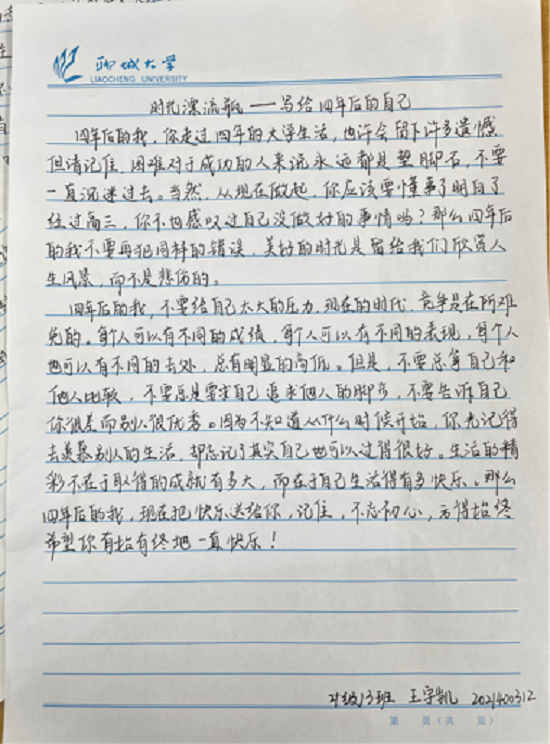 聊城大学
LIAOCHENG UNIVERSITY
时光漂流瓶——写给四年后的自己
四年后的我，你走过四年的大学生活，也许会留下许多遗憾
但请记住，困难对于成功的人来说永远都是垫脚石，不要
一直沉迷过去。当然，从现在做起，你应该要懂事了明白了
经过高三，你不也感叹过自己没做好的事情吗？那么四年后
的我不要再犯同样的错误，美好的时光是留给我们欣赏人
生风景，而不是悲伤的。
四年后的我，不要给自己太大的压力，现在的时代，竞争是在所难
免的。每个人可以有不同的成绩，每个人可以有不同的表现，每个人
也可以有不同的去处，总有明显的高低。但是，不要总拿自己和
他人比较，不要总是要求自己追求他人的脚步，不要告诉自己
你很差而别人很优秀。因为不知道从什么时候开始，你光记得
去羡慕别人的生活，却忘记了其实自己也可以过得很好。生活的精
彩不在于取得的成就有多大，而在于自己生活得有多快乐。那么
四年后的我，现在把快乐送给你，记住，不忘初心，方得始终
希望你有始有终地一直快乐！
21级13班 王宇凯 2021400312
第 页（共 页）